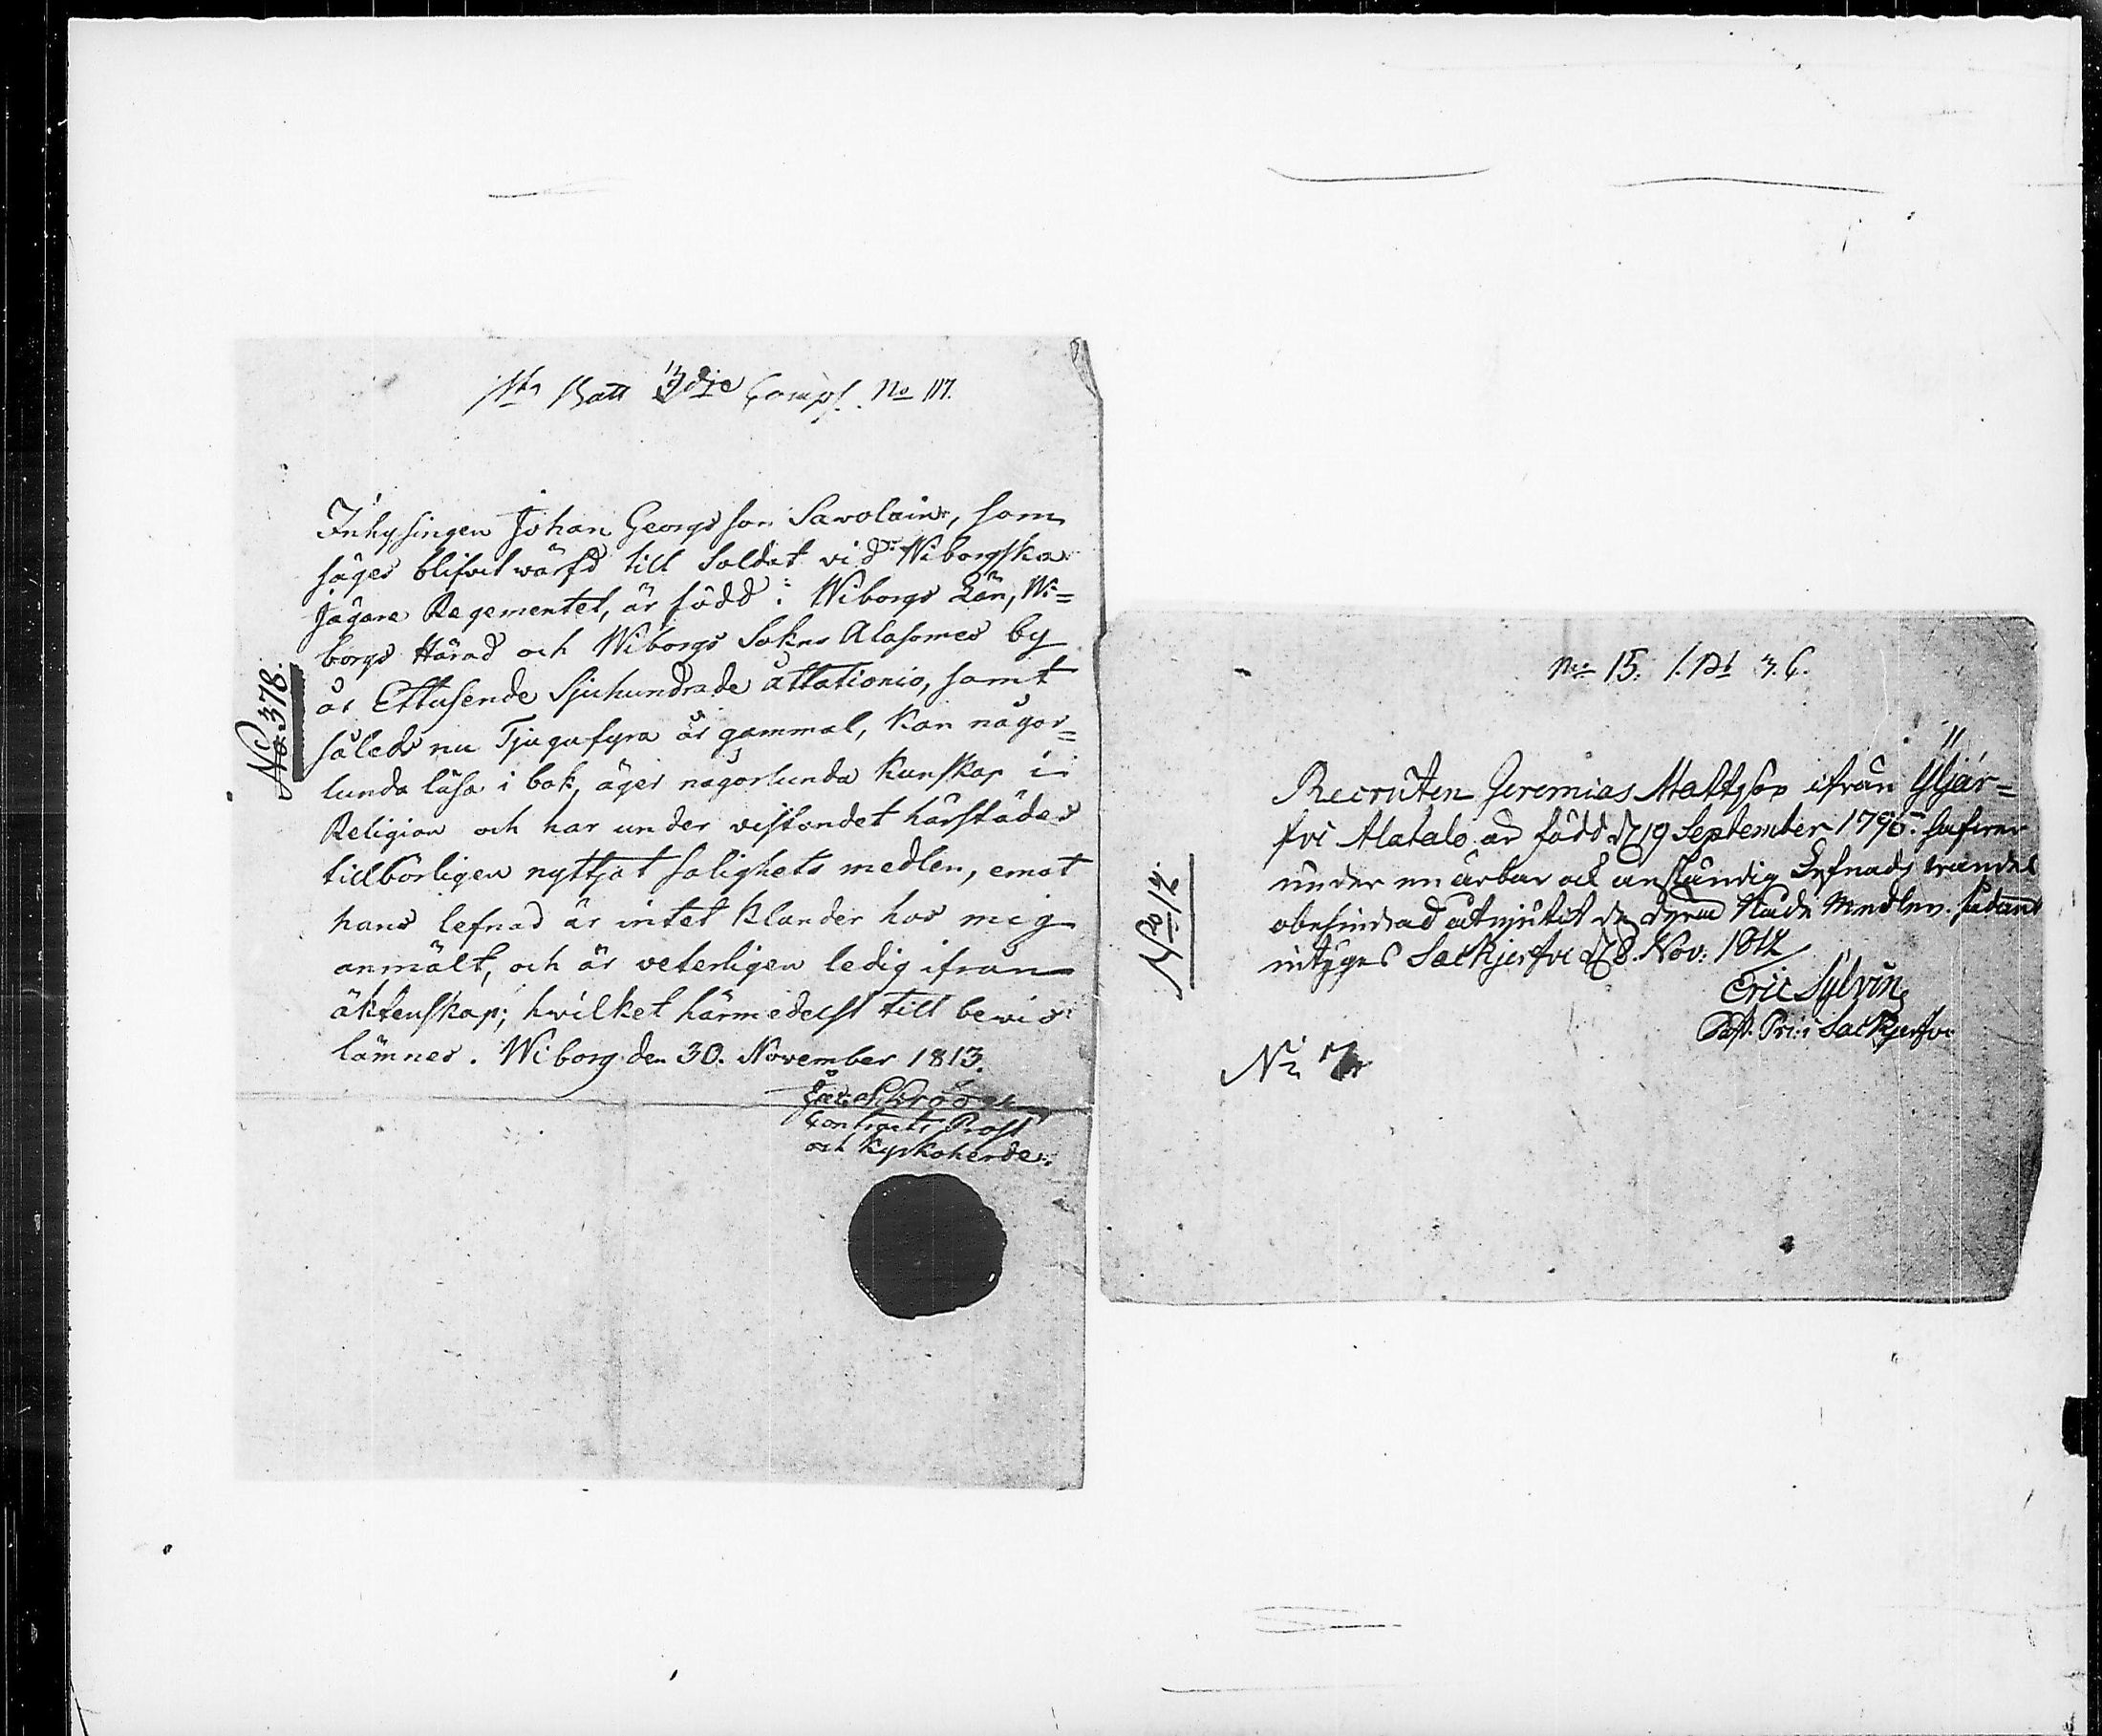 1sta Batt 3dje Comp. No 117.
No. 378.
Inhysingen Johan Georgs son Savolain, som
säges blifvit wärfd till Soldat vid Wiborgska
Jägare Regementet, är född i Wiborgs Län, Wi=
borgs Härad och Wiborgs Sokns Alasomes by
år Ettusende Sjuhundrade åttationio, samt
således nu Tjugufyra år gammal, kan någor=
lunda läsa i bok, äger någorlunda kunskap i
Religion och har under vistandet härstädes
tillbörligen nyttjat salighets medlen, emot
hans lefnad är intet klander hos mig
anmält, och är veterligen ledig ifrån
äktenskap; hvilket härmedelst till bewis
lämnes. Wiborg den 30. November 1813.
Contracts Prost
och Kyrkoherde.
No 15. 1. Bt 3. C.
No 12.
Recruten Jeremias Mattsson ifrån Yljär=
fvi Alatalo är född d 19 September 1795.
under en ärbar och anständig Lefnads wandel
obehindrad åtnjutit de dyra Nåde Medlen. sådant
intygas Säckjerfvi d 8. Nov: 1812
Eric Sylvin
Past. Pri: i Säckjerfvi
No 7